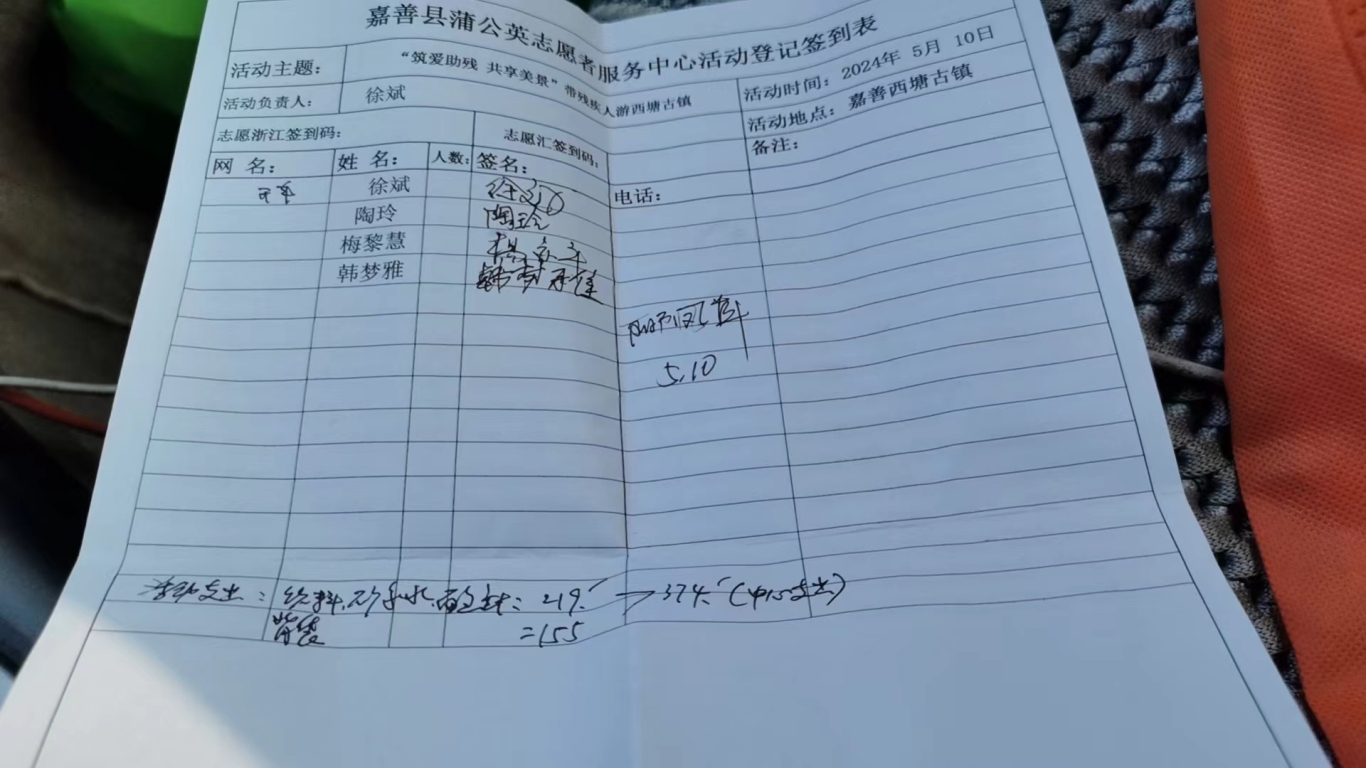 嘉善县蒲公英志愿者服务中心活动登记签到表
活动主题： “筑爱助残 共享美景”带残疾人游西塘古镇 活动时间：2024年 5月 10日
活动负责人： 徐斌 活动地点：嘉善西塘古镇
志愿浙江签到码： 志愿汇签到码： 备注：
网 名： 姓 名： 人数： 签名： 电话：
徐斌
陶玲 陶玲
梅黎慧
韩梦雅 韩梦雅
5.10
活动支出： 219. 374.（中心支出）
=155